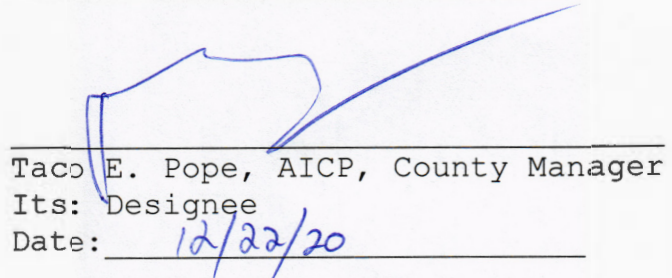 Taco E. Pope, AICP, County Manager
Its: Designee
Date: 12/22/20